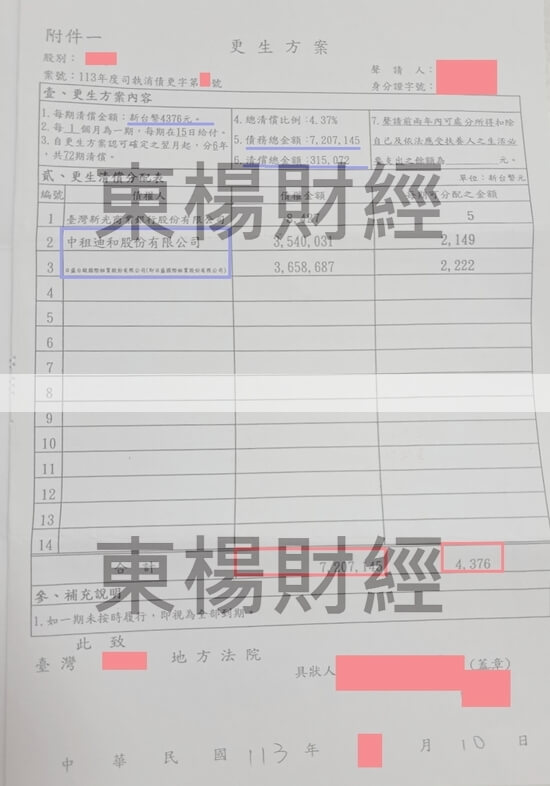 附件一
更生方案
股別：
案號：113年度司執消債更字第 號
聲請人：
身分證字號：
壹、更生方案內容
1. 每期清償金額：新台幣4376元。
2. 每 1 個月為一期，每期在15日給付。
3. 自更生方案認可確定之翌月起，分6年，共72期清償。
4. 總清償比例：4.37%
5. 債務總金額：7,207,145
6. 清償總金額：315,072
7. 聲請前兩年內可處分所得扣除自己及依法應受扶養人之生活必要支出之餘額為 元。
東楊財經
貳、更生清償分配表
單位：新台幣元
編號 債權人 債權金額 每期可分配之金額
1 臺灣新光商業銀行股份有限公司 8,427 5
2 中租迪和股份有限公司 3,540,031 2,149
3 日盛台駿國際租賃股份有限公司(即日盛國際租賃股份有限公司) 3,658,687 2,222
4
5
6
7
8
9
10
11
12
13
14
合計 7,207,145 4,376
東楊財經
參、補充說明
1. 如一期未按時履行，即視為全部到期。
此致
臺灣 地方法院
具狀人 (蓋章)
中華民國 113 年 月 10 日